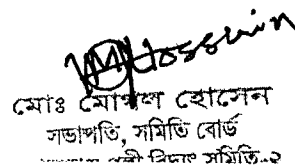 Hossain
মোঃ মোগল হোসেন
সভাপতি, সমিতি বোর্ড
পল্লী বিদ্যুৎ সমিতি-২